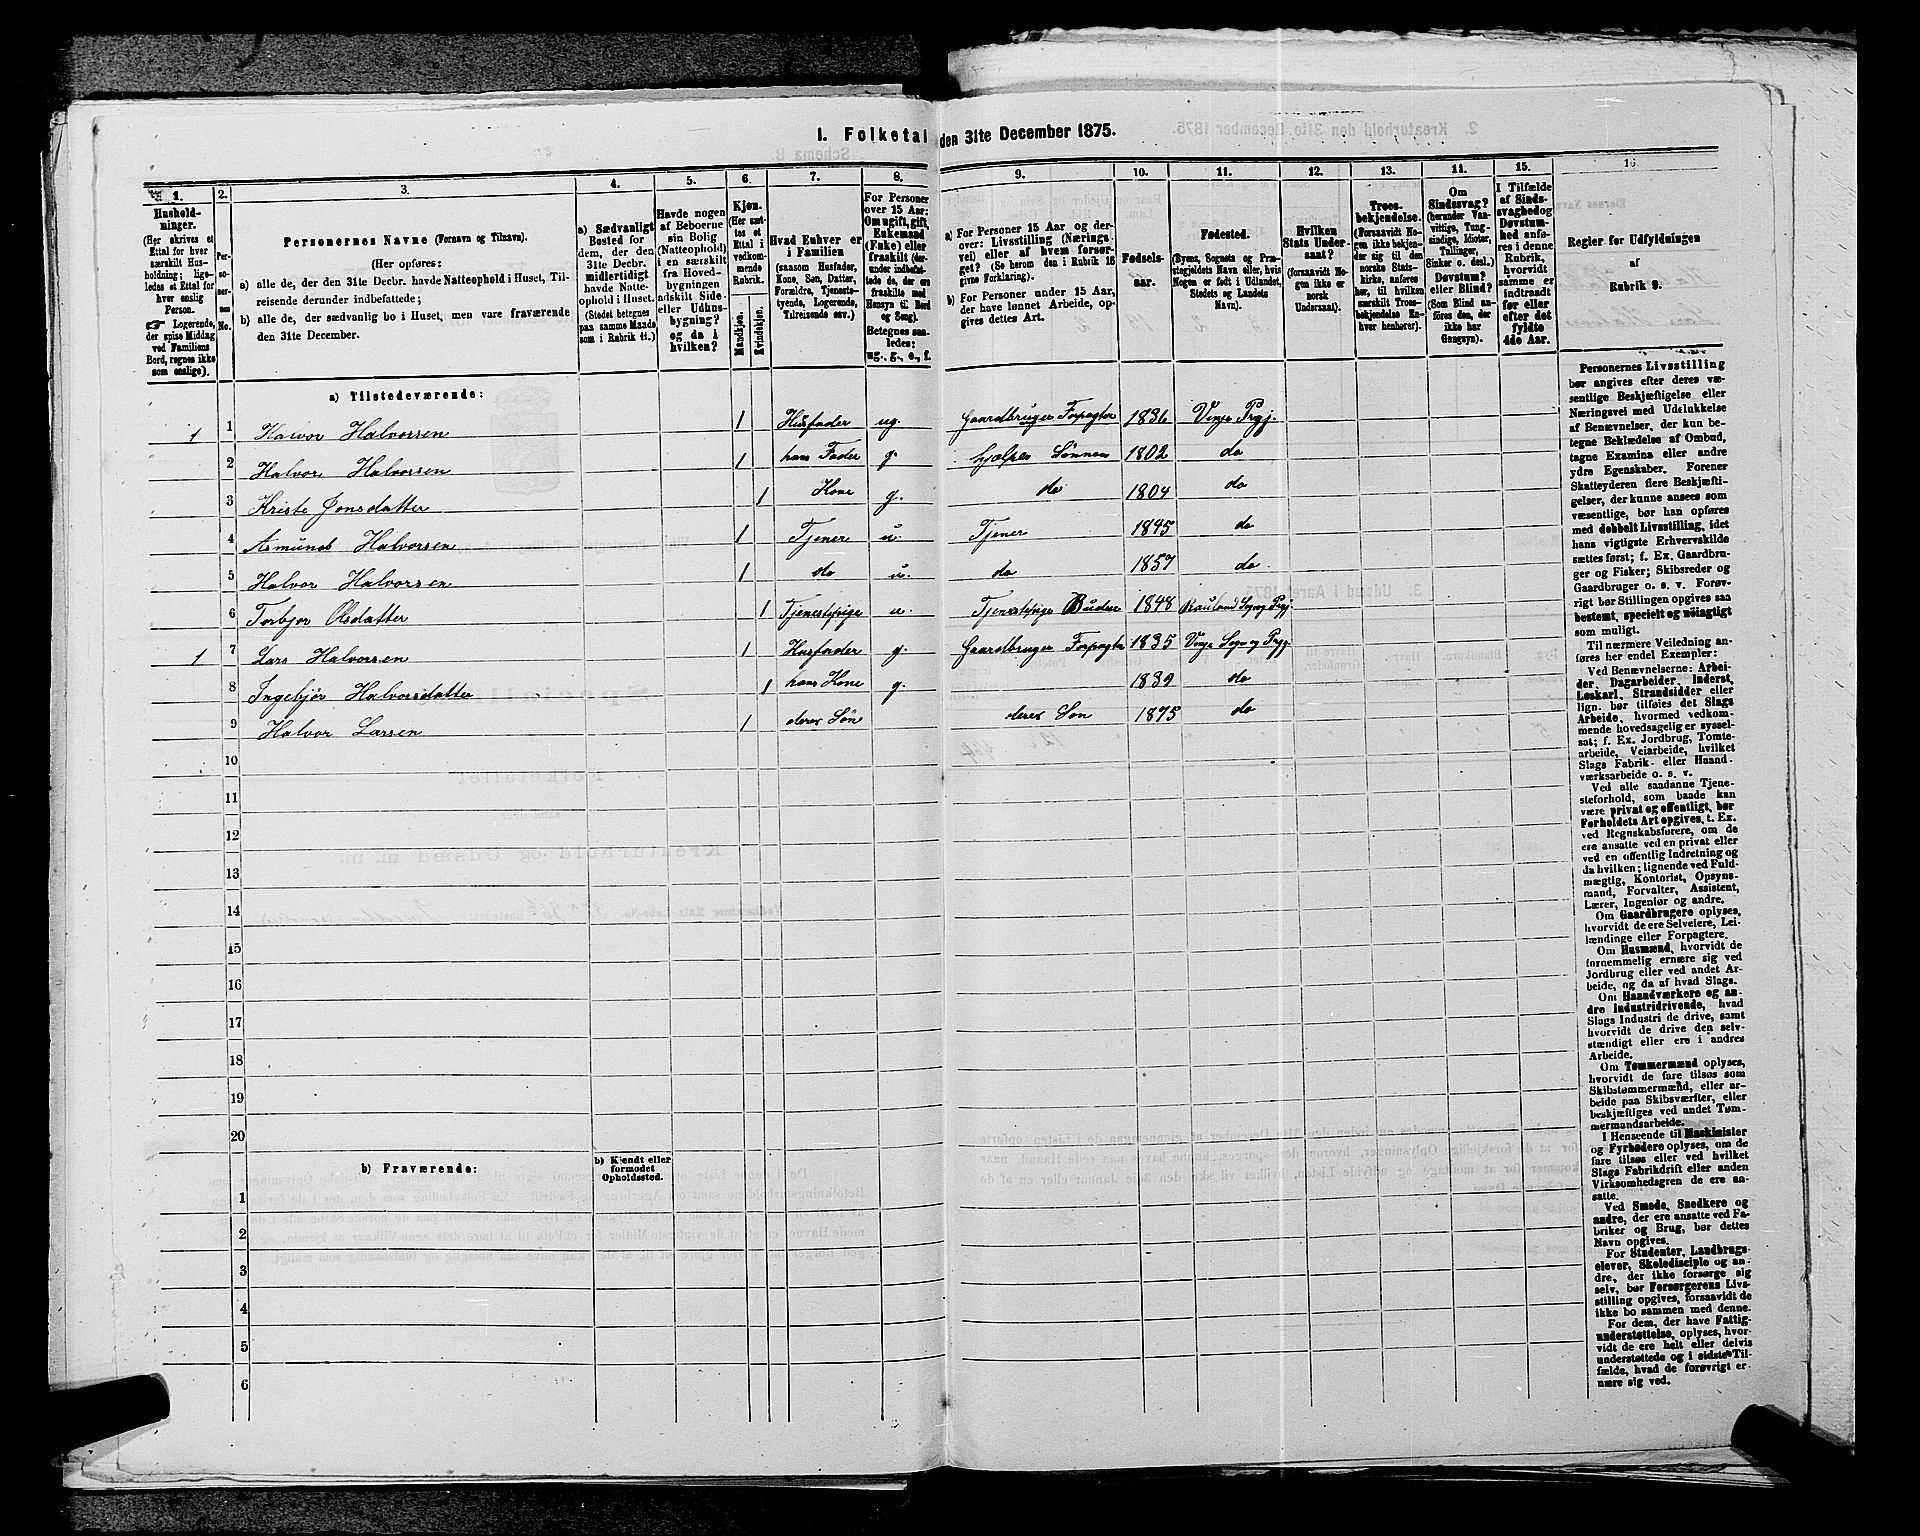 I. Folketal den 31te December 1875.
1. 2. 3. 4. 5. 6. 7. 8. 9. 10. 11. 12. 13. 14. 15. 16.
Hushold-
ninger.
(Her skrives et
Ettal for hver
særskilt Hus-
holdning; lige-
ledes et Ettal for
hver enslig
Person.
☛ Logerende,
der spise Middag
ved Familiens
Bord, regnes ikke
som enslige).
Per-
so-
ner-
nes
No.
Personernes Navne (Fornavn og Tilnavn).
(Her opføres:
a) alle de, der den 31te Decbr. havde Natteophold i Huset, Til-
reisende derunder indbefattede;
b) alle de, der sædvanlig bo i Huset, men vare fraværende
den 31te December.
a) Sædvanligt
Bosted for
dem, der den
31te Decbr.
midlertidigt
havde Natte-
ophold i Huset.
(Stedet betegnes
paa samme Maade
som i Rubrik 11.)
Havde nogen
af Beboerne
sin Bolig
(Natteophold)
i en særskilt
fra Hoved-
bygningen
adskilt Side-
eller Udhus-
bygning?
og da i
hvilken?
Kjøn.
(Her sæt-
tes et
Ettal i
vedkom-
mende
Rubrik.
Mandkjøn.
Kvindekjøn.
Hvad Enhver er
i Familien
(saasom Husfader,
Kone, Søn, Datter,
Forældre, Tjeneste-
tyende, Logerende,
Tilreisende osv.)
For Personer
over 15 Aar:
Om ugift, gift,
Enkemand
(Enke) eller
fraskilt (der-
under indbefat-
tede de, der
ere fraskilte med
Hensyn til Bord
og Seng).
Betegnes saa-
ledes:
ug., g., e., f.
a) For Personer 15 Aar og der-
over: Livsstilling (Nærings-
vei) eller af hvem forsør-
get? (Se herom den i Rubrik 16
givne Forklaring).
b) For Personer under 15 Aar,
der have lønnet Arbeide, op-
gives dettes Art.
Fødsels-
aar.
Fødested.
(Byens, Sognets og Præ-
stegjeldets Navn eller, hvis
Nogen er født i Udlandet,
Stedets og Landets
Navn).
Hvilken
Stats Under-
saat?
(forsaavidt No-
gen ikke er
norsk
Undersaat).
Troes-
bekjendelse.
(Forsaavidt No-
gen ikke bekjen-
der sig til den
norske Stats-
kirke, anføres
her, til hvilken
særskilt Troes-
bekjendelse En-
hver henhører).
Om
Sindssvag?
(herunder Van-
vittige, Tung-
sindige, Idioter,
Tullinger,
Sinker o. desl.)
Døvstum?
eller Blind?
(Som Blind an-
føres den, der
ikke har
Gangsyn).
I Tilfælde
af Sinds-
svaghed og
Døvstum-
hed anfø-
res i denne
Rubrik,
hvorvidt
samme er
indtraadt
før eller
efter det
fyldte
4de Aar.
Regler for Udfyldningen
af
Rubrik 9.
a) Tilstedeværende:
1 1 Halvor Halvorsen 1 Husfader ug. Gaardbruger Forpagter 1836 Vinje Prgj.
2 Halvor Halvorsen 1 hans Fader g. hjælper Sønnen 1802 do
3 Kriste Jonsdatter 1 Kone g. do 1804 do
4 Asmund Halvorsen 1 Tjener u. Tjener 1845 do
5 Halvor Halvorsen 1 do u. do 1857 do
6 Torbjør Olsdatter 1 Tjenestpige u. Tjenestpige Budeie 1848 Rauland Sogn Prgj.
1 7 Lars Halvorsen 1 Husfader g. Gaardbruger Forpagter 1835 Vinje Sogn og Prgj
8 Ingebjør Halvorsdatter 1 hans Kone g. 1839 do
9 Halvor Larsen 1 deres Søn deres Søn 1875 do
10
11
12
13
14
15
16
17
18
19
20
b) Fraværende:
b) Kjendt eller
formodet
Opholdssted.
1
2
3
4
5
6
Personernes Livsstilling
bør angives efter deres væ-
sentlige Beskjæftigelse eller
Næringsvei med Udelukkelse
af Benævnelser, der kun be-
tegne Beklædelse af Ombud,
tagne Examina eller andre
ydre Egenskaber. Forener
Skatteyderen flere Beskjæfti-
gelser, der kunne ansees som
væsentlige, bør han opføres
med dobbelt Livsstilling, idet
hans vigtigste Erhvervskilde
sættes først; f. Ex. Gaardbru-
ger og Fisker; Skibsreder og
Gaardbruger o. s. v. Forøv-
rigt bør Stillingen opgives saa
bestemt, specielt og nøiagtigt
som muligt.
Til nærmere Veiledning an-
føres her endel Exempler:
Ved Benævnelserne: Arbei-
der, Dagarbeider, Inderst,
Løskarl, Strandsidder eller
lign. bør tilføies det Slags
Arbeide, hvormed vedkom-
mende hovedsagelig er syssel-
sat; f. Ex. Jordbrug, Tomte-
arbeide, Veiarbeide, hvilket
Slags Fabrik- eller Haand-
værksarbeide o. s. v.
Ved alle saadanne Tjene-
steforhold, som baade kan
være privat og offentligt, bør
Forholdets Art opgives, t. Ex.
ved Regnskabsførere, om de
ere ansatte ved en privat eller
ved en offentlig Indretning og
da hvilken; lignende ved Fuld-
mægtig, Kontorist, Opsyns-
mand, Forvalter, Assistent,
Lærer, Ingeniør og andre.
Om Gaardbrugere oplyses,
hvorvidt de ere Selveiere, Lei-
lændinge eller Forpagtere.
Om Husmænd, hvorvidt de
fornemmelig ernære sig ved
Jordbrug eller ved andet Ar-
beide, og da af hvad Slags.
Om Haandværkere og an-
dre Industridrivende, hvad
Slags Industri de drive, samt
hvorvidt de drive den selv-
stændigt eller ere i andres
Arbeide.
Om Tømmermænd oplyses,
hvorvidt de fare tilsøs som
Skibstømmermænd, eller ar-
beide paa Skibsværfter, eller
beskjæftiges ved andet Tøm-
mermandsarbeide.
I Henseende til Maskinister
og Fyrbødere oplyses, om de
fare tilsøs eller ved hvilket
Slags Fabrikdrift eller anden
Virksomhedsgren de ere an-
satte.
Ved Smede, Snedkere og
andre, der ere ansatte ved Fa-
briker og Brug, bør dettes
Navn opgives.
For Studenter, Landbrugs-
elever, Skoledisciple og an-
dre, der ikke forsørge sig
selv, bør Forsørgerens Livs-
stilling opgives, forsaavidt de
ikke bo sammen med denne.
For dem, der have Fattig-
understøttelse, oplyses, hvor-
vidt de ere helt eller delvis
understøttede og i sidste Til-
fælde, hvad de forøvrigt er-
nære sig ved.